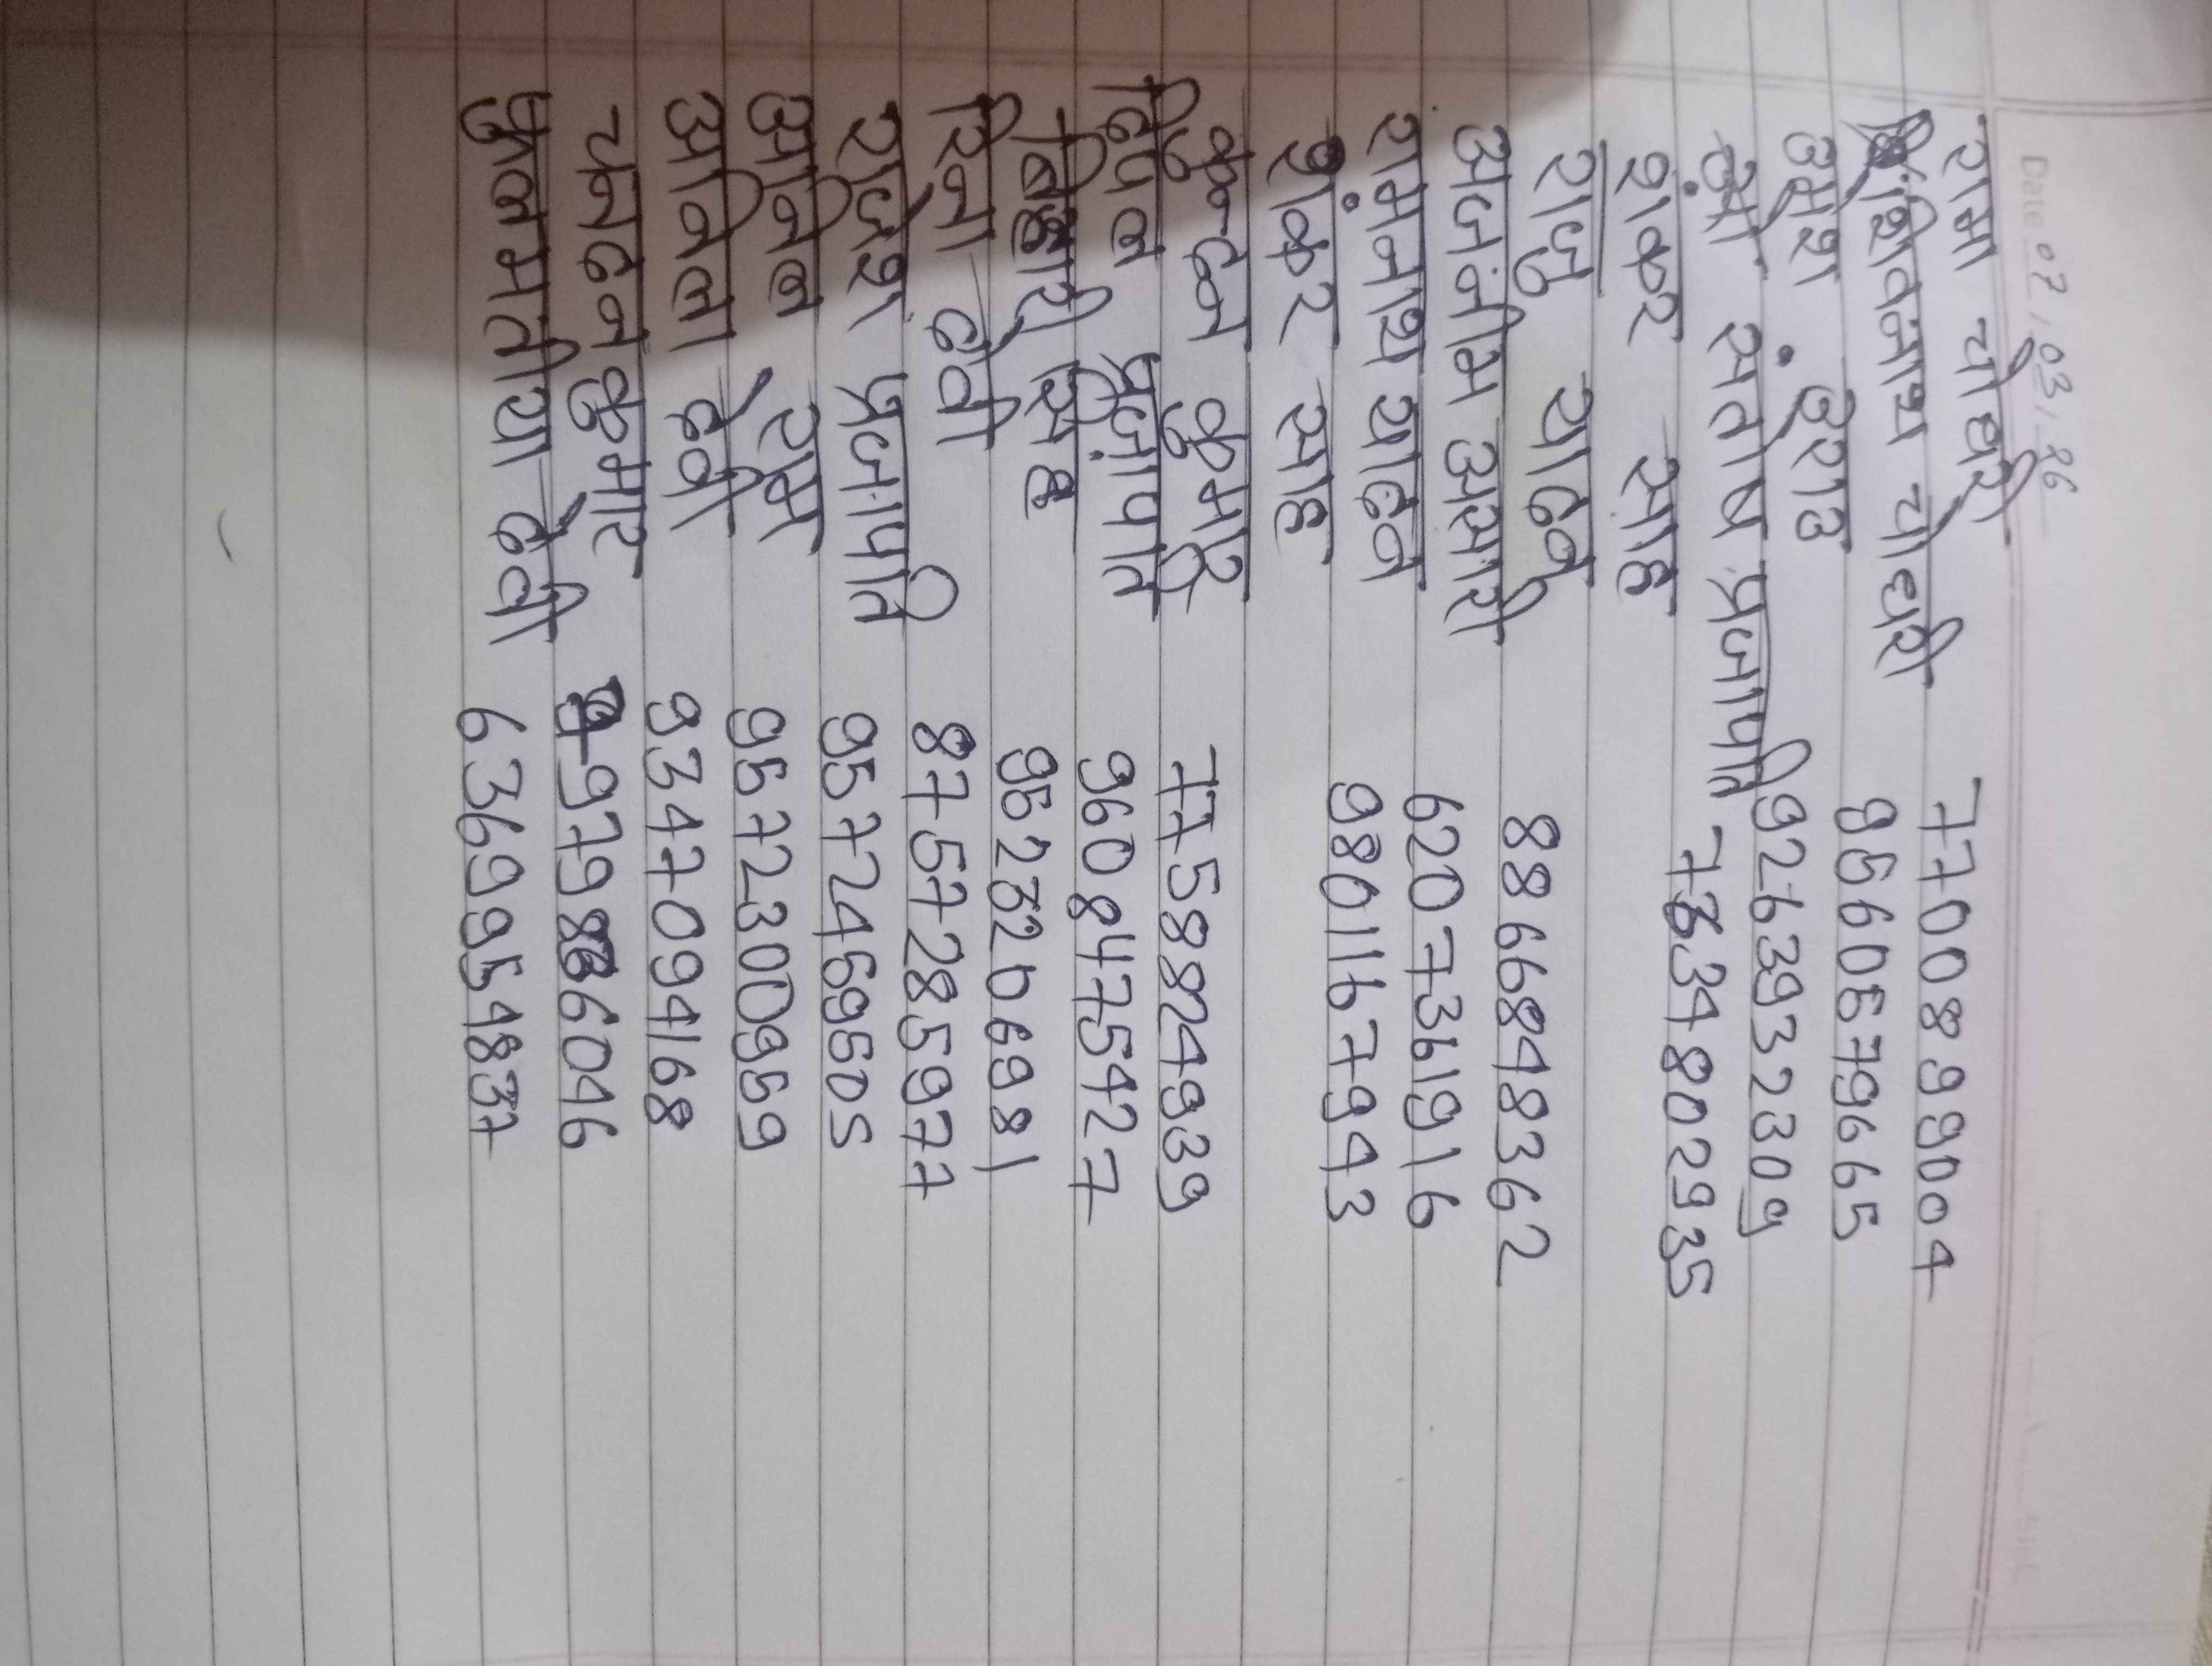 Date 07/03/26
रामा चौधरी 7700899004
शिवनाथ चौधरी 9560579665
उमेश ठुराउ 9263932309
संतोष प्रजापति 7634802935
शंकर साह
राजु यादव 8866848362
अजनीम अंसारी 6207361916
रामनाथ यादव 9801167943
शंकर साह
कुन्दन कुमार 7758824939
विपिन प्रजापति 9608475427
विहारी सिंह 9523206981
रिना देवी 8757285977
राजेश प्रजापति 9572459505
अनिल राम 9572300959
अनिता देवी 9347094168
चनदन कुमार 979886046
फुलमतीया देवी 6369954837